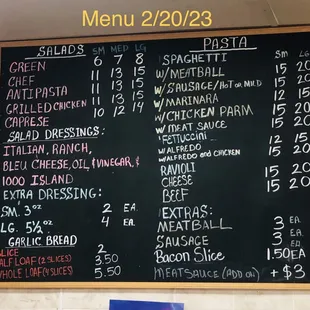 Menu 2/20/23
SALADS SM MED LG
GREEN 6 7 8
CHEF 11 13 15
ANTIPASTA 11 13 15
GRILLED CHICKEN 11 13 15
CAPRESE 10 12 14
SALAD DRESSINGS:
ITALIAN, RANCH,
BLEU CHEESE, OIL, & VINEGAR, &
1000 ISLAND
EXTRA DRESSING:
SM. 3 OZ 2 EA.
LG. 5½ OZ 4 EA.
GARLIC BREAD
SLICE 2
HALF LOAF (2 SLICES) 3.50
WHOLE LOAF (4 SLICES) 5.50
PASTA
SPAGHETTI SM LG
W/ MEATBALL 15 20
W/ SAUSAGE/HOT OR MILD 15 20
W/ MARINARA 12
W/ CHICKEN PARM 15 20
W/ MEAT SAUCE 15 20
FETTUCCINI
W/ ALFREDO
W/ ALFREDO AND CHICKEN
RAVIOLI
CHEESE 15 20
BEEF
EXTRAS:
MEATBALL 3 EA
SAUSAGE 3 EA
Bacon Slice 1.50 EA
MEAT SAUCE (ADD ON) + $3